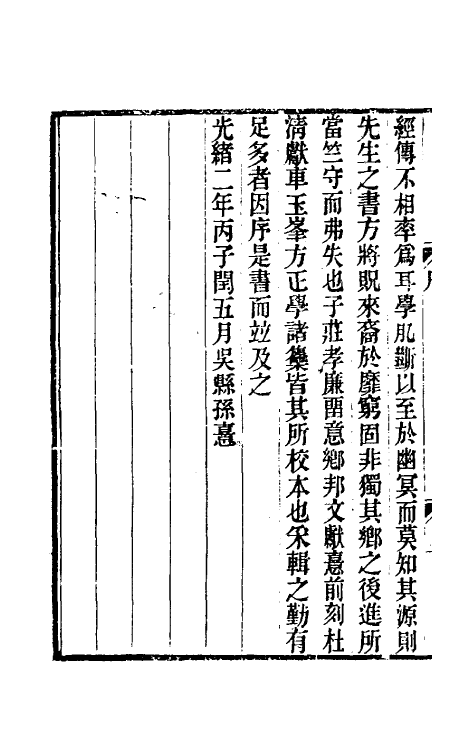 經傳不相率爲耳學肊斷以至於幽冥而莫知其源則
先生之書方將貺來裔於靡窮固非獨其鄉之後進所
當竺守而弗失也子莊孝廉畱意鄉邦文獻憙前刻杜
清獻車玉峯方正學諸集皆其所校本也釆輯之勤有
足多者因序是書而竝及之
光緒二年丙子閏五月吳縣孫憙